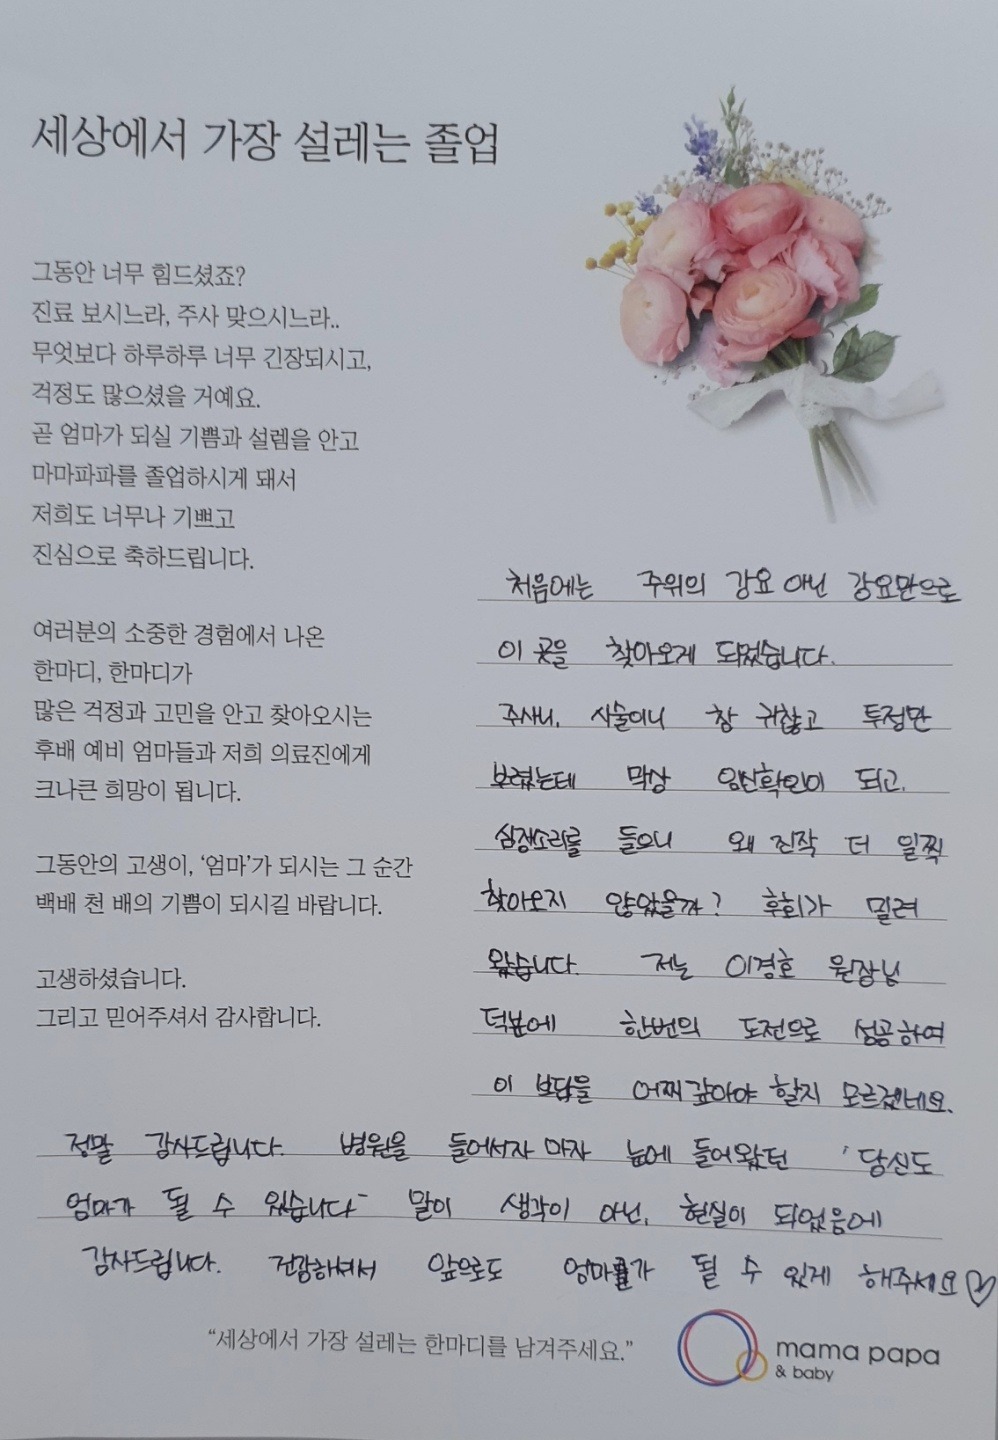 세상에서 가장 설레는 졸업
그동안 너무 힘드셨죠?
진료 보시느라, 주사 맞으시느라..
무엇보다 하루하루 너무 긴장되시고,
걱정도 많으셨을 거예요.
곧 엄마가 되실 기쁨과 설렘을 안고
마마파파를 졸업하시게 돼서
저희도 너무나 기쁘고
진심으로 축하드립니다.
여러분의 소중한 경험에서 나온
한마디, 한마디가
많은 걱정과 고민을 안고 찾아오시는
후배 예비 엄마들과 저희 의료진에게
크나큰 희망이 됩니다.
그동안의 고생이, ‘엄마’가 되시는 그 순간
백배 천 배의 기쁨이 되시길 바랍니다.
고생하셨습니다.
그리고 믿어주셔서 감사합니다.
처음에는 주위의 강요 아닌 강요만으로
이 곳을 찾아오게 되었습니다.
주사니, 시술이니 참 귀찮고 투정만
보렸는데 막상 임신확인이 되고,
심장소리를 들으니 왜 진작 더 일찍
찾아오지 않았을까? 후회가 밀려
왔습니다. 저는 이경호 원장님
덕분에 한번의 도전으로 성공하여
이 보답을 어찌 갚아야 할지 모르겠네요.
정말 감사드립니다. 병원을 들어서자 마자 눈에 들어왔던 '당신도
엄마가 될 수 있습니다' 말이 생각이 아닌, 현실이 되었음에
감사드립니다. 건강하셔서 앞으로도 엄마가 될 수 있게 해주세요♡
“세상에서 가장 설레는 한마디를 남겨주세요.”
mama papa
& baby